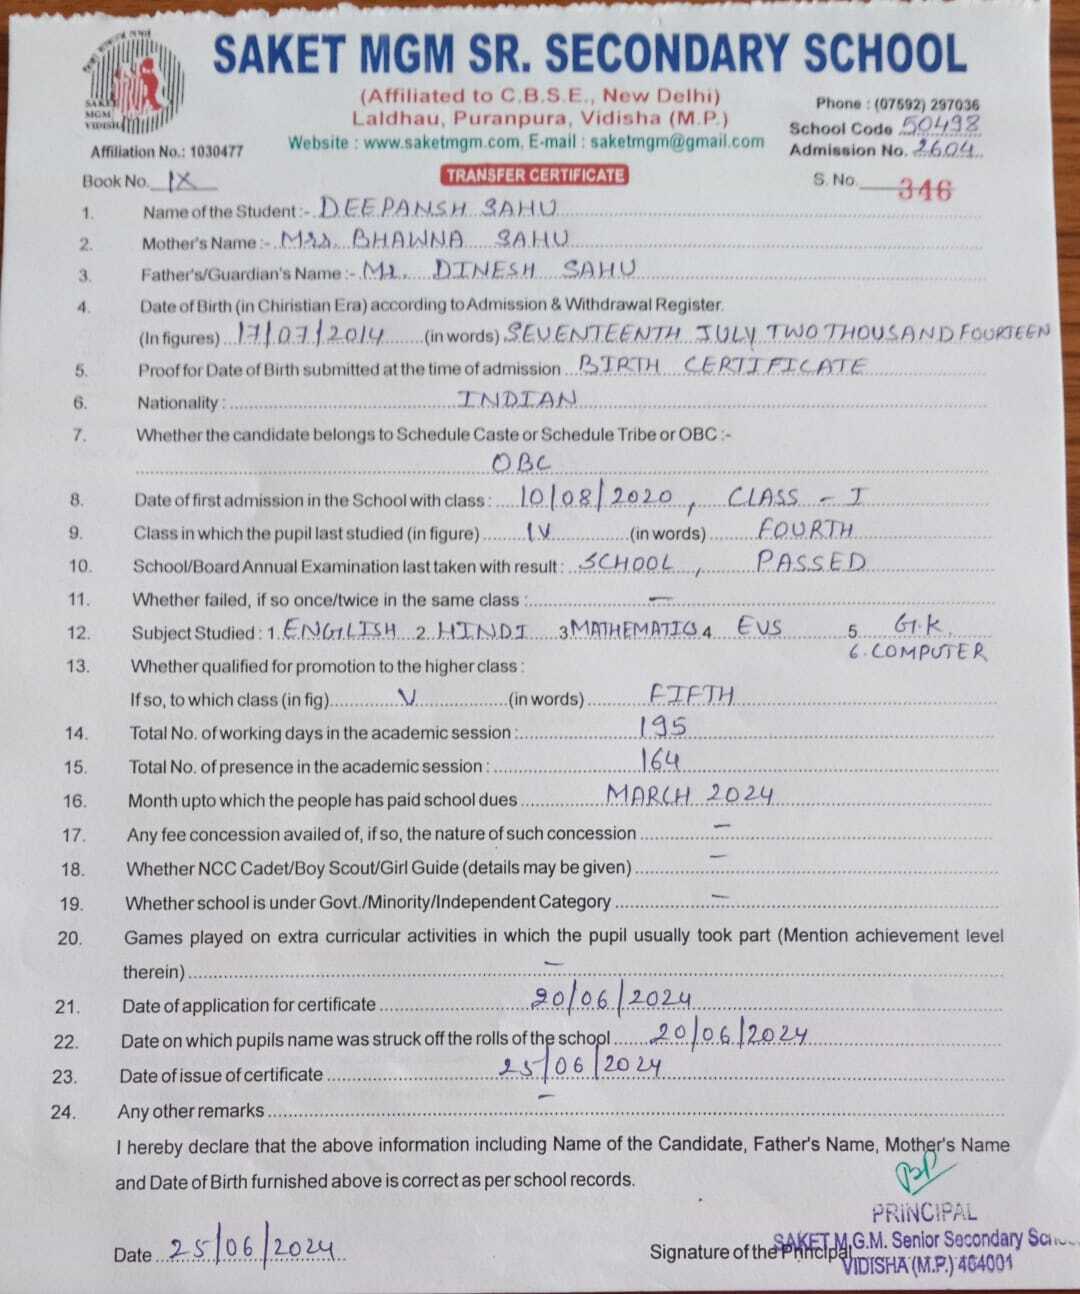 SAKET MGM SR. SECONDARY SCHOOL
(Affiliated to C.B.S.E., New Delhi)
Laldhau, Puranpura, Vidisha (M.P.)
Website : www.saketmgm.com, E-mail : saketmgm@gmail.com
SAKET
MGM
VIDISHA
Phone : (07592) 297036
School Code 50498
Affiliation No.: 1030477
Admission No. 2604
Book No. IX
TRANSFER CERTIFICATE
S. No. 346
1. Name of the Student :- DEEPANSH SAHU
2. Mother's Name :- Mrs. BHAWNA SAHU
3. Father's/Guardian's Name :- Mr. DINESH SAHU
4. Date of Birth (in Chiristian Era) according to Admission & Withdrawal Register.
(In figures) 17/07/2014 (in words) SEVENTEENTH JULY TWO THOUSAND FOURTEEN
5. Proof for Date of Birth submitted at the time of admission BIRTH CERTIFICATE
6. Nationality : INDIAN
7. Whether the candidate belongs to Schedule Caste or Schedule Tribe or OBC :-
OBC
8. Date of first admission in the School with class : 10/08/2020, CLASS - I
9. Class in which the pupil last studied (in figure) IV (in words) FOURTH
10. School/Board Annual Examination last taken with result : SCHOOL, PASSED
11. Whether failed, if so once/twice in the same class : -
12. Subject Studied : 1. ENGLISH 2. HINDI 3. MATHEMATICS 4. EVS 5. G.K.
6. COMPUTER
13. Whether qualified for promotion to the higher class :
If so, to which class (in fig) V (in words) FIFTH
14. Total No. of working days in the academic session : 195
15. Total No. of presence in the academic session : 164
16. Month upto which the people has paid school dues MARCH 2024
17. Any fee concession availed of, if so, the nature of such concession -
18. Whether NCC Cadet/Boy Scout/Girl Guide (details may be given) -
19. Whether school is under Govt./Minority/Independent Category -
20. Games played on extra curricular activities in which the pupil usually took part (Mention achievement level
therein) -
21. Date of application for certificate 20/06/2024
22. Date on which pupils name was struck off the rolls of the school 20/06/2024
23. Date of issue of certificate 25/06/2024
24. Any other remarks -
I hereby declare that the above information including Name of the Candidate, Father's Name, Mother's Name
and Date of Birth furnished above is correct as per school records.
PRINCIPAL
SAKET M.G.M. Senior Secondary
VIDISHA (M.P.) 464001
Date 25/06/2024
Signature of the Principal